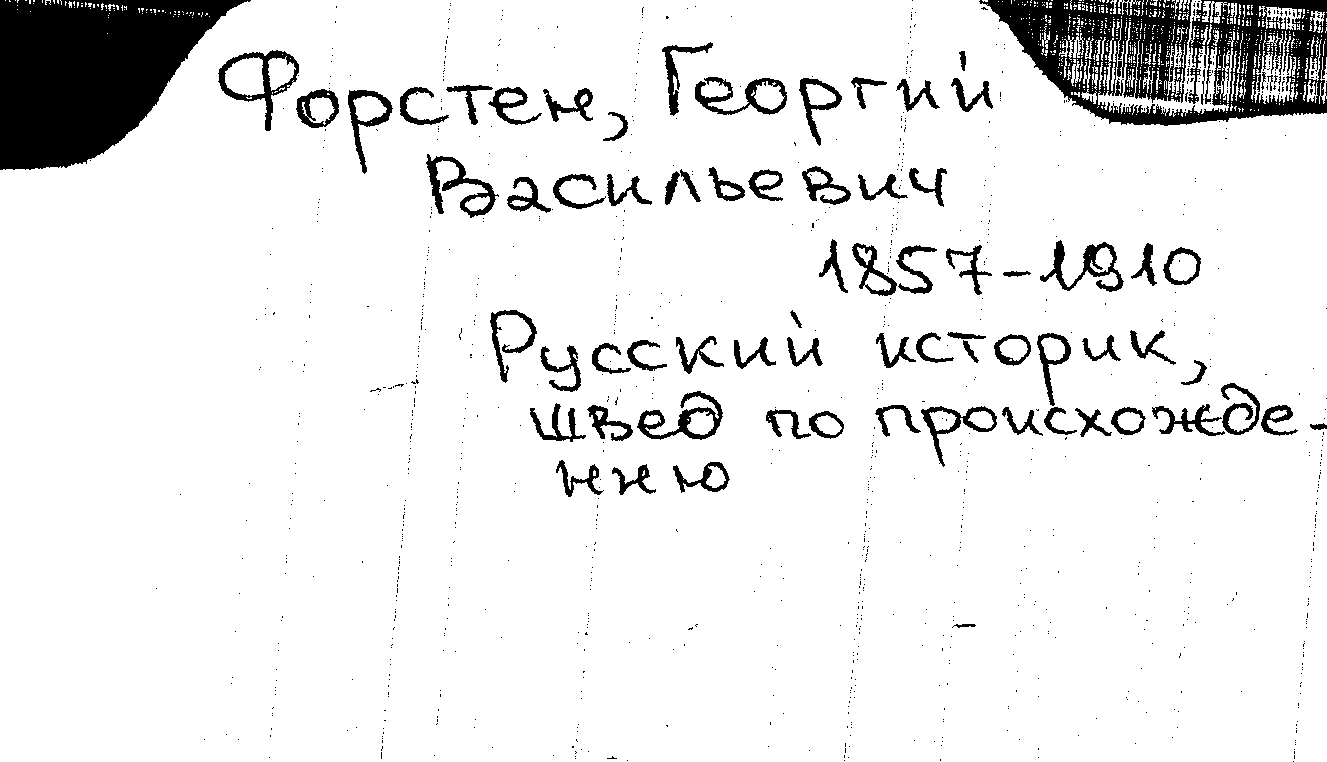 Форстен, Георгий
Васильевич
1857-1910
Русский историк,
швед по происхожде-
нию